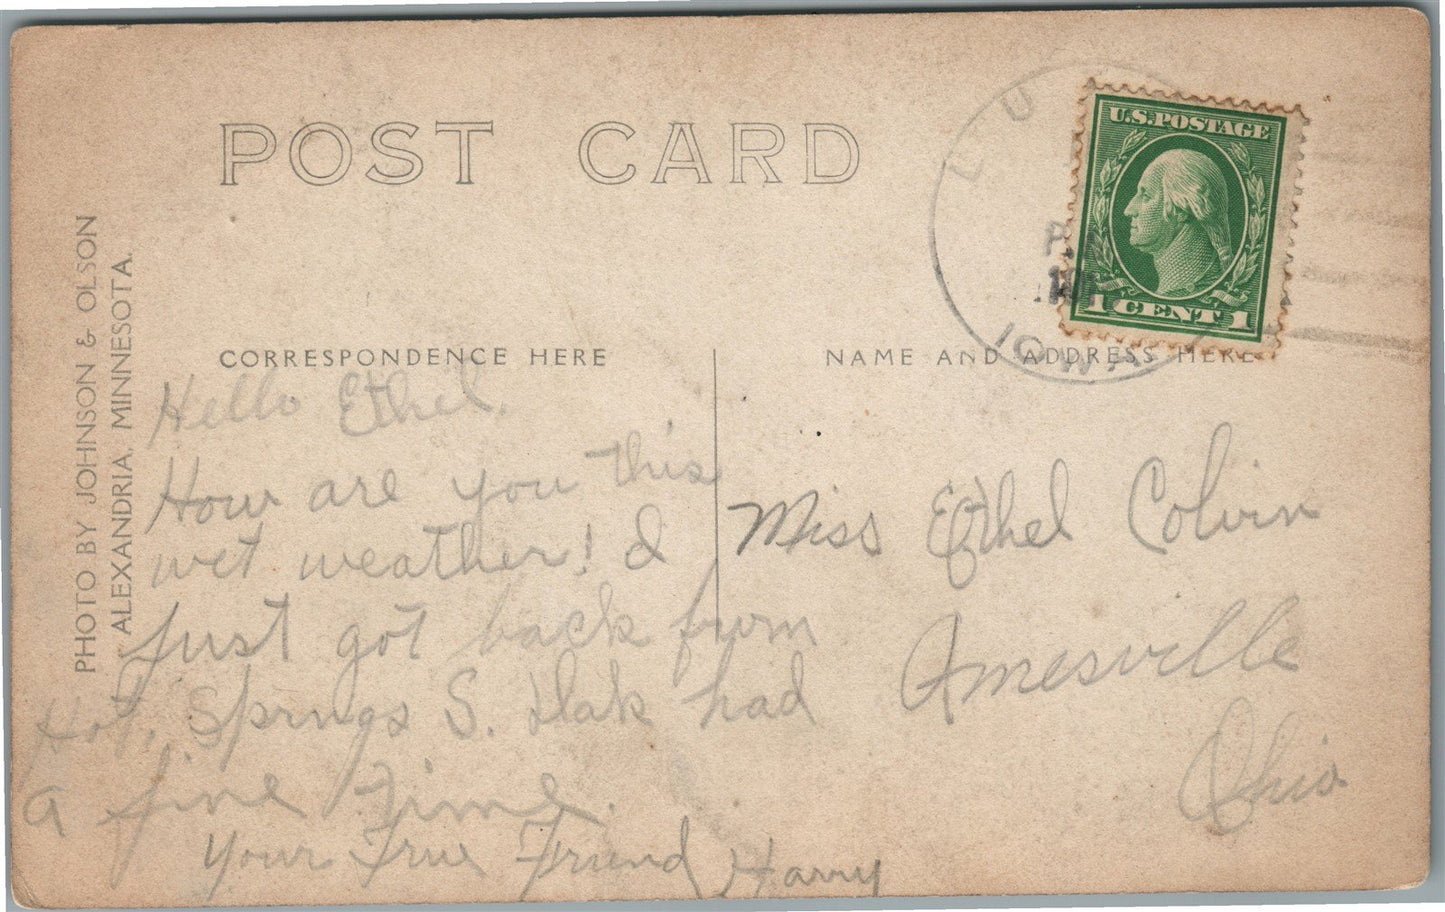 POST CARD
PHOTO BY JOHNSON & OLSON
ALEXANDRIA, MINNESOTA.
U.S. POSTAGE
1 CENT 1
L U
P.
IOWA
CORRESPONDENCE HERE
NAME AND ADDRESS HERE
Hello Ethel.
How are you this
wet weather! I
just got back from
Hot. Springs S. Dak had
a fine time.
Your True Friend Harry
Miss Ethel Colvin
Amesville
Ohio